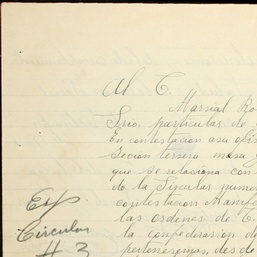 Al C.
Marsial Ro
Srio. particular de
En contestacion asu ofi
Secion tersera mesa y
que se relaciona con
do la Sircular numer
contestacion Manifi
las ordenes de C.
la confederasion de
pertenesemos, des de
Exp
Circular
# 3